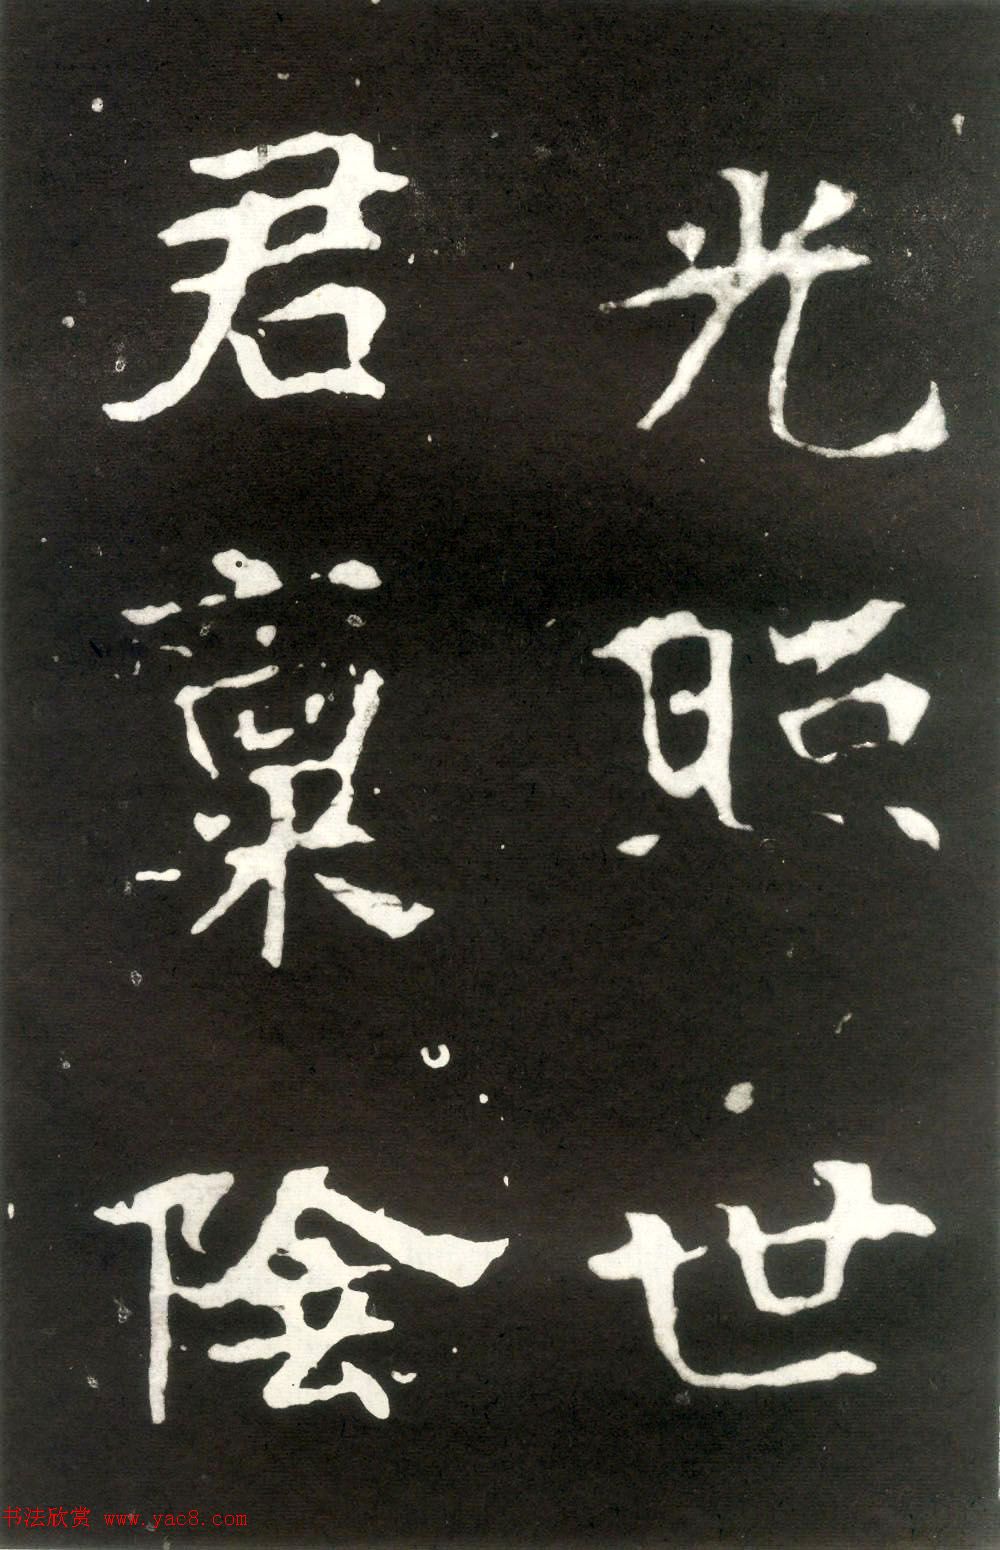 光照世
君稟陰
书法欣赏 www.yac8.com